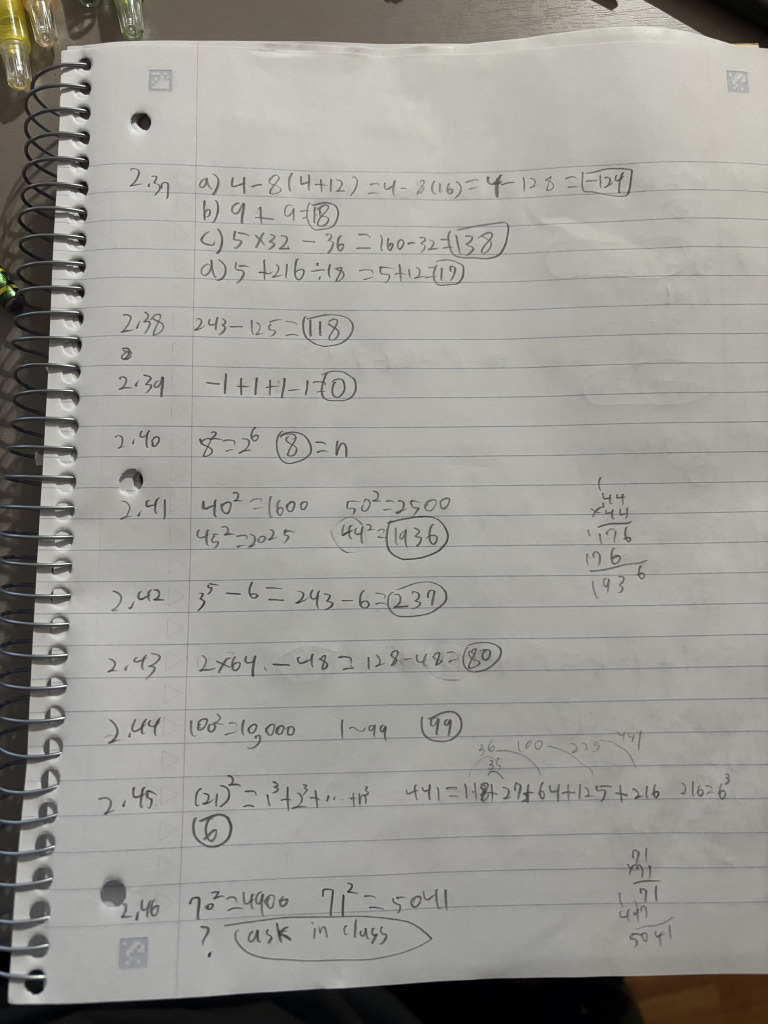 2.37 a) 4-8(4+12) = 4-8(16) = 4-128 = -124
b) 9 + 9 = 18
c) 5×32 - 36 = 160-32 = 138
d) 5 + 216 ÷ 18 = 5+12 = 17
2.38 243-125 = 118
8
2.39 -1+1+1-1=0
2.40 8²=2⁶ 8 = n
2.41 40²=1600 50²=2500
45²=2025 44²=1936
1
44
×44
176
176
1936
2.42 3⁵ - 6 = 243-6 = 237
2.43 2×64 - 48 = 128-48 = 80
2.44 100²=10,000 1~99 99
36 100 225 441
35
2.45 (21)²=1³+2³+...+n³ 441=1+8+27+64+125+216 216=6³
6
2.46 70²=4900 71²=5041
71
×71
71
5041
? ask in class